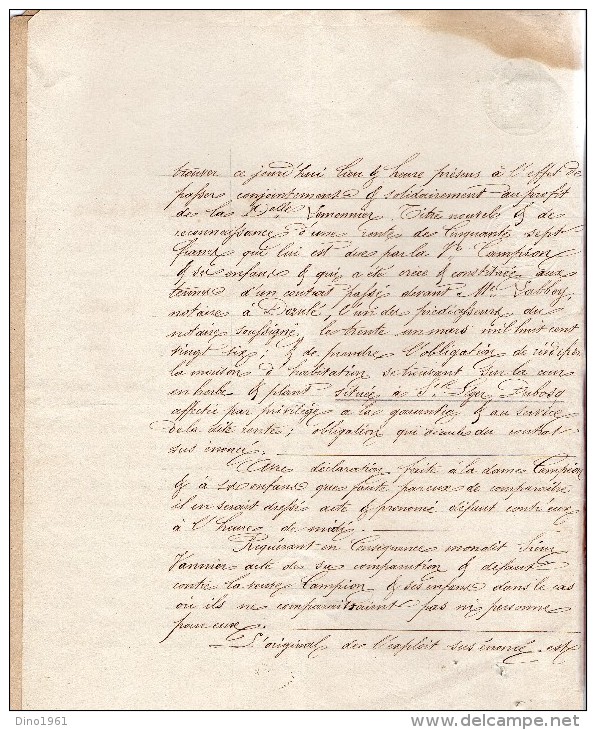 trouver ce jourd'hui lieu & heure présens à l'effet de
passer conjointement & solidairement au profit
de la Delle Lemonnier, Titre nouvel & de
reconnaissance d'une rente de Cinquante sept
francs que lui est due par la Ve Campion
& ses enfans & qui a été créée & constituée aux
termes d'un contrat passé devant Me Labbey,
notaire à Dozulé, l'un des prédécesseurs du
notaire soussigné, le trente un mars mil huit cent
vingt six; & de prendre l'obligation de réédifier
la maison d'habitation se trouvant sur la cour
en herbe & plant située à St Dubosq
affectée par privilège à la garantie & au service
de la dite rente; obligation qui découle du contrat
sus énoncé.
Avec déclaration faite à la dame Campion
& à ses enfans que faute par eux de comparaître
il en serait dressé acte & prononcé défaut contre eux
à l'heure de midi.
Requérant en Conséquence mondit Sieur
Vannier acte de sa comparution & défaut
contre la veuve Campion & ses enfans dans le cas
où ils ne comparaitraient pas ni personne
pour eux.
L'original de l'exploit sus énoncé est
Dino1961
www.delcampe.net